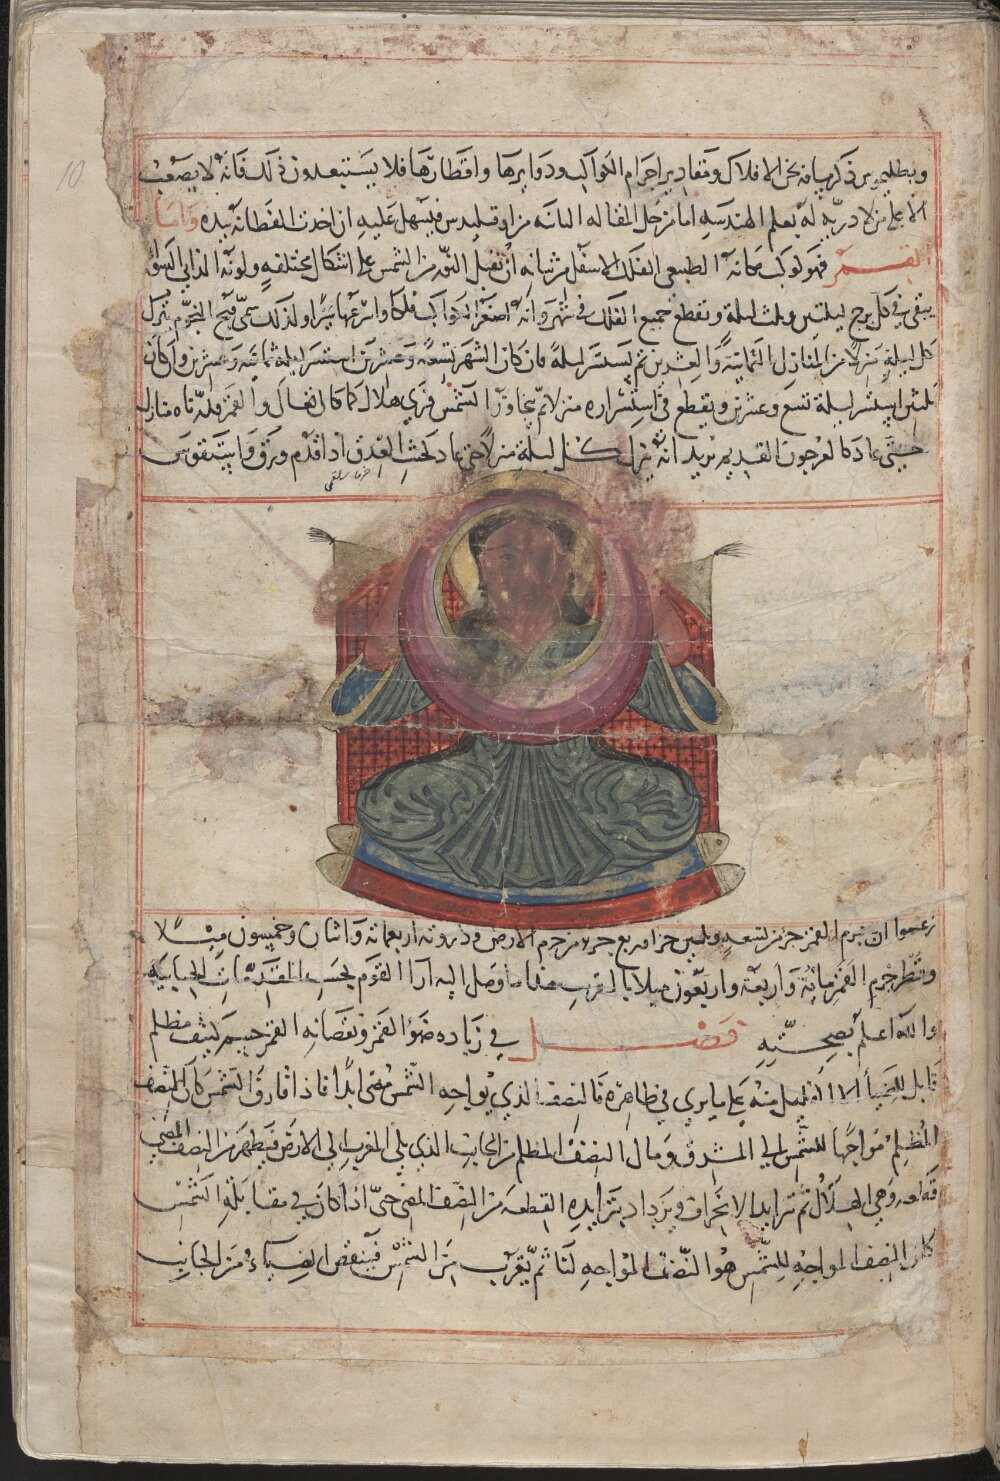 10
وبطليموس ذكر مسافة نخن الافلاك ومقادير اجرام الكواكب ودوايرها واقطارها فلا يستبعدون ذلك فانه لا يصعب
الا على من لا دربة له بعلم الهندسه اما من حل المقاله من اوقليدس فيسهل عليه ان اخذت الفطانة بيده واما
القمر فهو كوكب مكانه الطبيعى الفلك الاسفل من شانه ان يقبل النور من الشمس على اشكال مختلفة ولونه الذاتي السواد
يبقى في كل برج ليلتين وثلث ليلة ويقطع جميع الفلك في شهر وانه اصغر الكواكب فلكا واسرعها سيرا ولذلك سمى فيج النجوم ينزل
كل ليلة منزلا من المنازل الثمانية والعشرين ثم يستسر ليلة فان كان الشهر تسعة وعشرين استسر ليلة ثمانية وعشرين وان كان
ثلثين استسر ليلة تسع وعشرين ويقطع في استسراره منزلا ثم يتجاوز الشمس فيرى هلالا كما قال تعالى والقمر قدرناه منازل
حتى عاد كالعرجون القديم يريد انه ينزل كل ليلة منزلا حتى عاد كحيث العذق اذا قدم ورق وابيض تقوس
زعموا ان جرم القمر جزء من تسعة وثلثين جزا وربع جزء من جرم الارض ودورته اربعمائة واثنان وخمسون ميلا
وقطر جرم القمر مائة واربعة واربعون ميلا بالتقريب هذا ما وصل اليه آرا القوم بحسب المقدمات الحسابية
والله اعلم بصحته فصل في زياده ضوء القمر ونقصانه القمر جسم كثيف مظلم
قابل للضيأ الا القليل منه على ما يرى في ظاهره فالنصف الذي يواجه الشمس مضى ابدا فاذا قارق الشمس كان النصف
المظلم مواجها للشمس الى المشرق ومال النصف المظلم من الجانب الذي يلى المغرب الى الارض فيظهر من النصف المضى
قطعه وهي الهلال ثم تزايد الانحراف ويزداد بتزايده القطعه من النصف المضى حتى اذا كان في مقابلة الشمس
كان النصف المواجه للشمس هو النصف المواجه لنا ثم يقرب من الشمس فينقص الضياء من الجانب